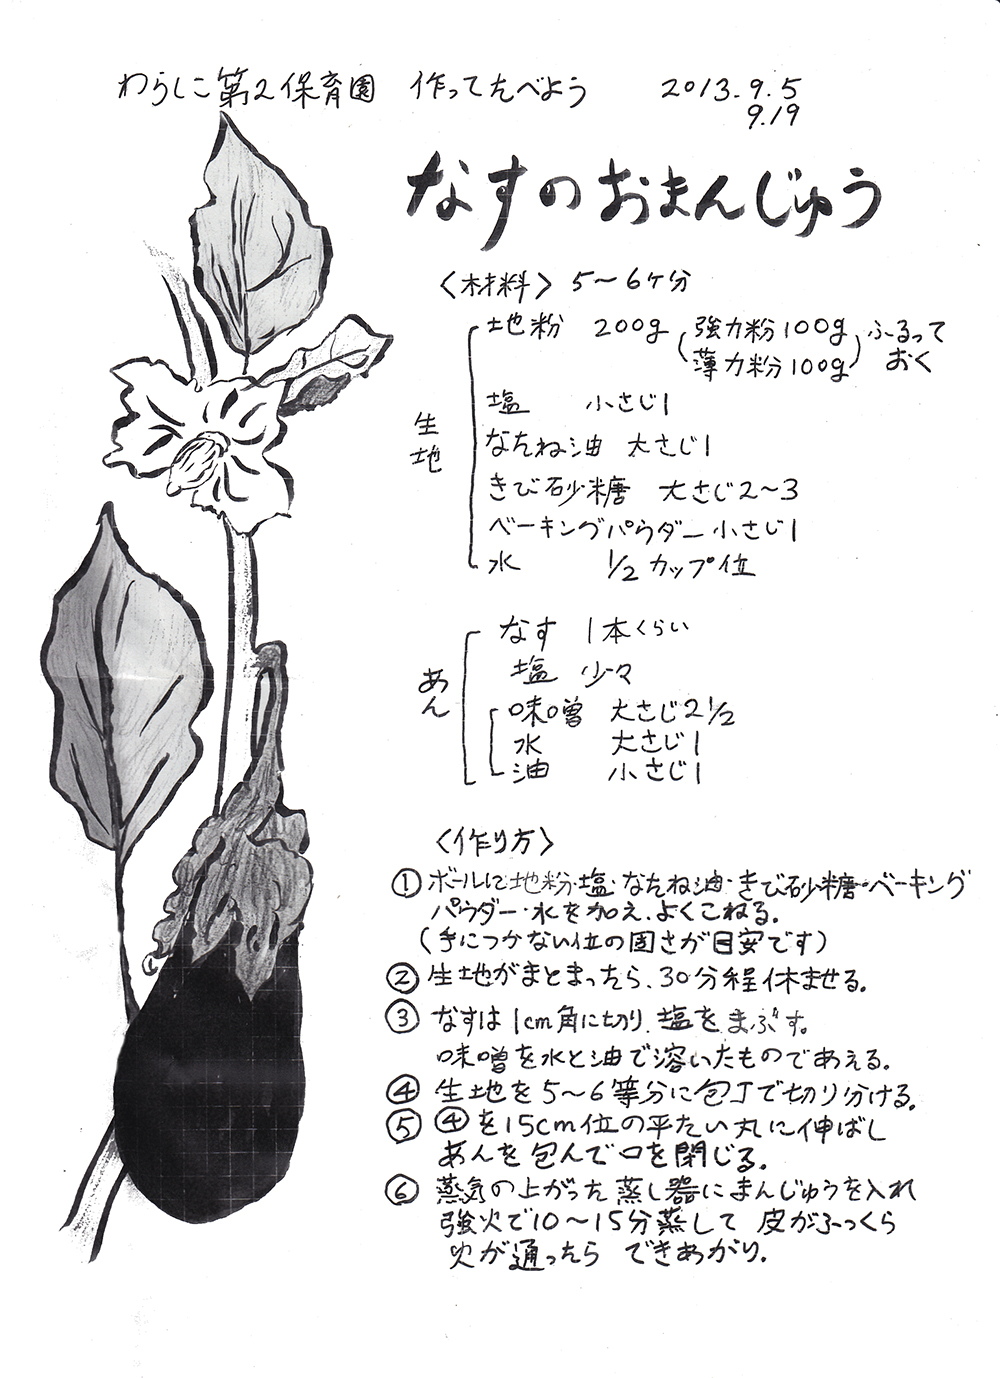 わらしこ第2保育園 作ってたべよう 2013.9.5
9.19
なすのおまんじゅう
〈材料〉 5〜6ケ分
生地
地粉 200g (強力粉100g 薄力粉100g) ふるっておく
塩 小さじ1
なたね油 大さじ1
きび砂糖 大さじ2〜3
ベーキングパウダー 小さじ1
水 1/2カップ位
あん
なす 1本くらい
塩 少々
味噌 大さじ2 1/2
水 大さじ1
油 小さじ1
〈作り方〉
① ボールに地粉・塩・なたね油・きび砂糖・ベーキング
パウダー・水を加え、よくこねる。
(手につかない位の固さが目安です)
② 生地がまとまったら、30分程休ませる。
③ なすは1cm角に切り、塩をまぶす。
味噌を水と油で溶いたものであえる。
④ 生地を5〜6等分に包丁で切り分ける。
⑤ ④を15cm位の平たい丸に伸ばし
あんを包んで口を閉じる。
⑥ 蒸気の上がった蒸し器にまんじゅうを入れ
強火で10〜15分蒸して 皮がふっくら
火が通ったら できあがり。